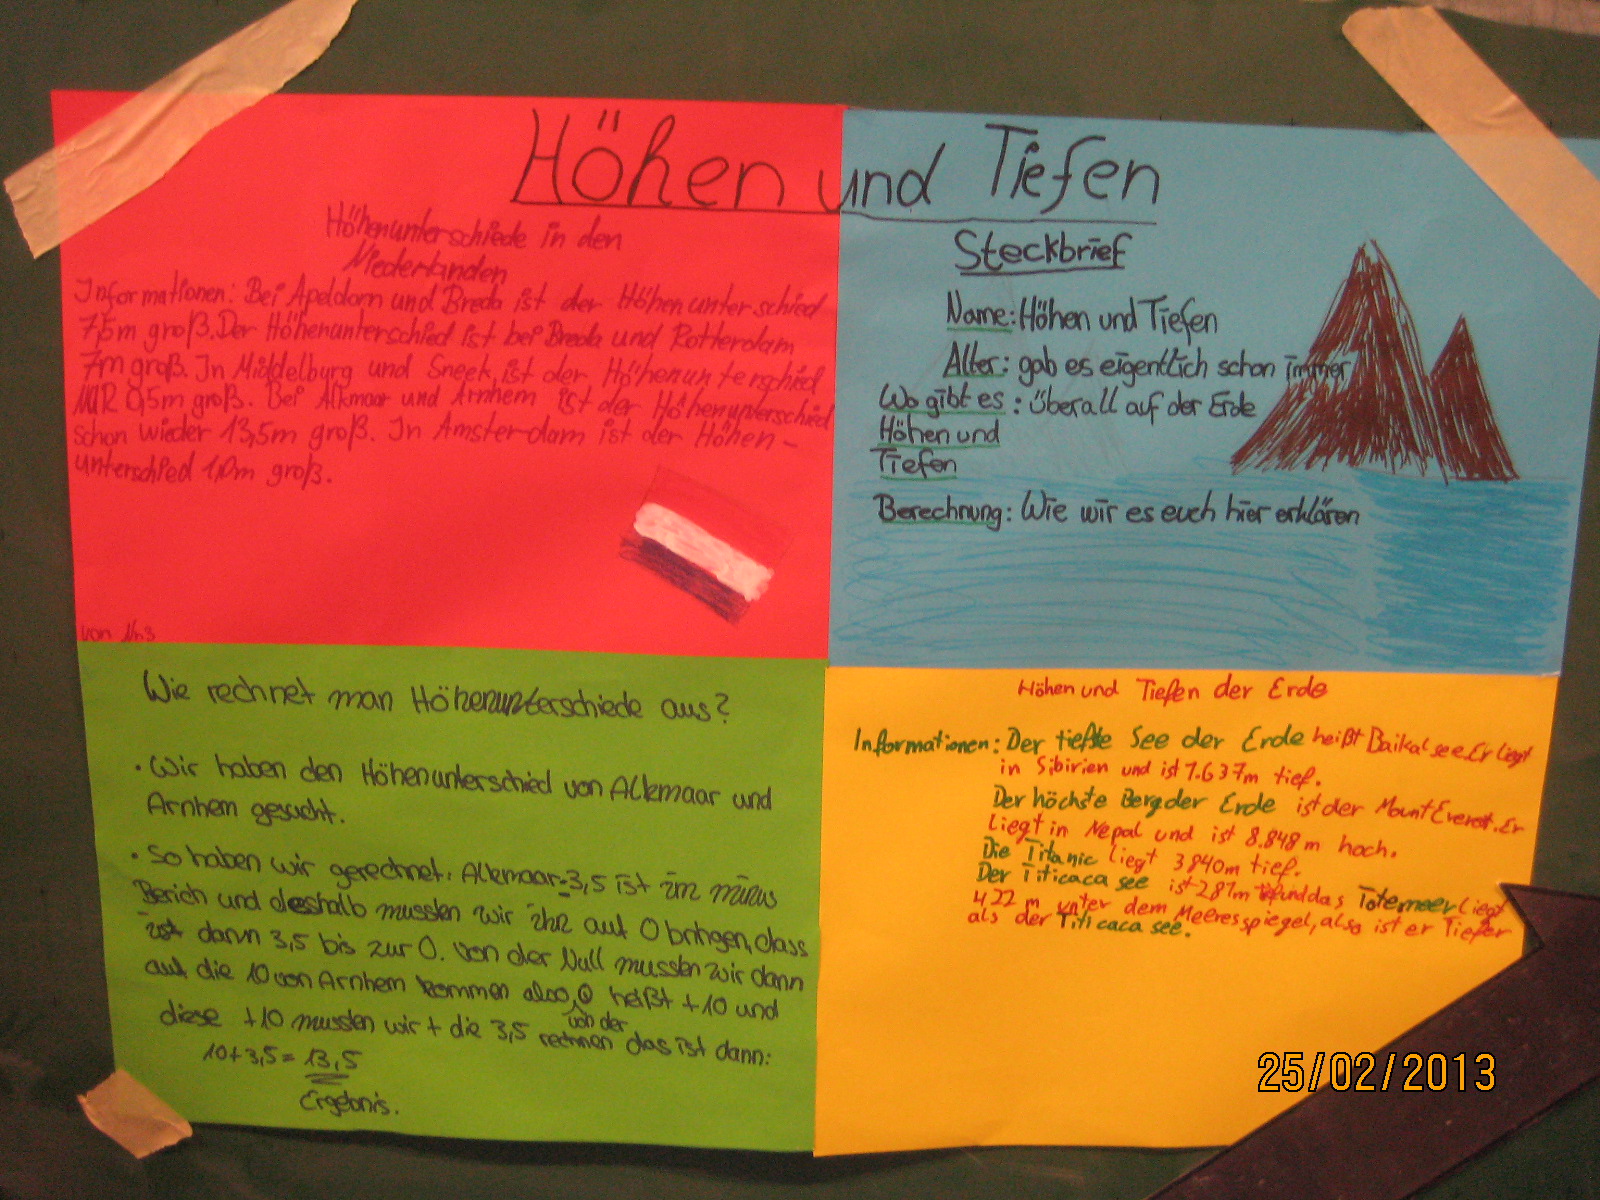 Höhen und Tiefen
Höhenunterschiede in den
Niederlanden
Informationen: Bei Apeldorn und Breda ist der Höhenunterschied
7,5m groß. Der Höhenunterschied ist bei Breda und Rotterdam
7m groß. In Middelburg und Sneek, ist der Höhenunterschied
NUR 0,5m groß. Bei Alkmaar und Arnhem ist der Höhenunterschied
schon wieder 13,5m groß. In Amsterdam ist der Höhen-
unterschied 1,0m groß.
von
Steckbrief
Name: Höhen und Tiefen
Alter: gab es eigentlich schon immer
Wo gibt es : überall auf der Erde
Höhen und
Tiefen
Berechnung: Wie wir es euch hier erklären
Wie rechnet man Höhenunterschiede aus?
• Wir haben den Höhenunterschied von Alkmaar und
Arnhem gesucht.
• So haben wir gerechnet: Alkmaar -3,5 ist im minus
Berich und deshalb mussten wir ihn auf 0 bringen, dass
ist dann 3,5 bis zur 0. Von der Null mussten wir dann
auf die 10 von Arnhem kommen also 0 heißt +10 und
diese +10 mussten wir + die 3,5 von der rechnen das ist dann:
10+3,5= 13,5
Ergebnis.
Höhen und Tiefen der Erde
Informationen: Der tiefste See der Erde heißt Baikalsee. Er liegt
in Sibirien und ist 1.637m tief.
Der höchste Berg der Erde ist der Mount Everest. Er
liegt in Nepal und ist 8.848 m hoch.
Die Titanic liegt 3.840m tief.
Der Titicaca see ist -281m und das Totemeer liegt
422 m unter dem Meeresspiegel, also ist er Tiefer
als der Titicaca see.
25/02/2013